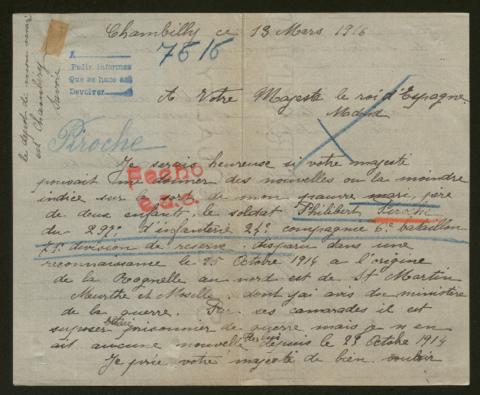 le depot de mon mari
est Chambéry
Savoie
Chambilly ce 13 Mars 1916
7515
A
Pedir informes
Que se hace así
Devolver
A Votre Majeste le roi d'Espagne
Piroche
Je serais heureuse si votre majesté
pouvait me donner des nouvelles ou la moindre
indice sur le sort de mon pauvre mari, père
Hecho
de deux enfants, le soldat Philibert Piroche
du 297e d'infanterie 24e compagnie 6e bataillon
71e division de reserve disparu dans une
reconnaissance le 25 Octobre 1914 a l'origine
de la au nord est de St Martin
Meurthe et Moselle dont j'ai avis du ministère
de la guerre. Par ses camarades il est
supposer prisonnier de guerre mais je n'en
ait aucune nouvelle depuis le 23 Octobre 1914
Je prie votre majesté de bien vouloir